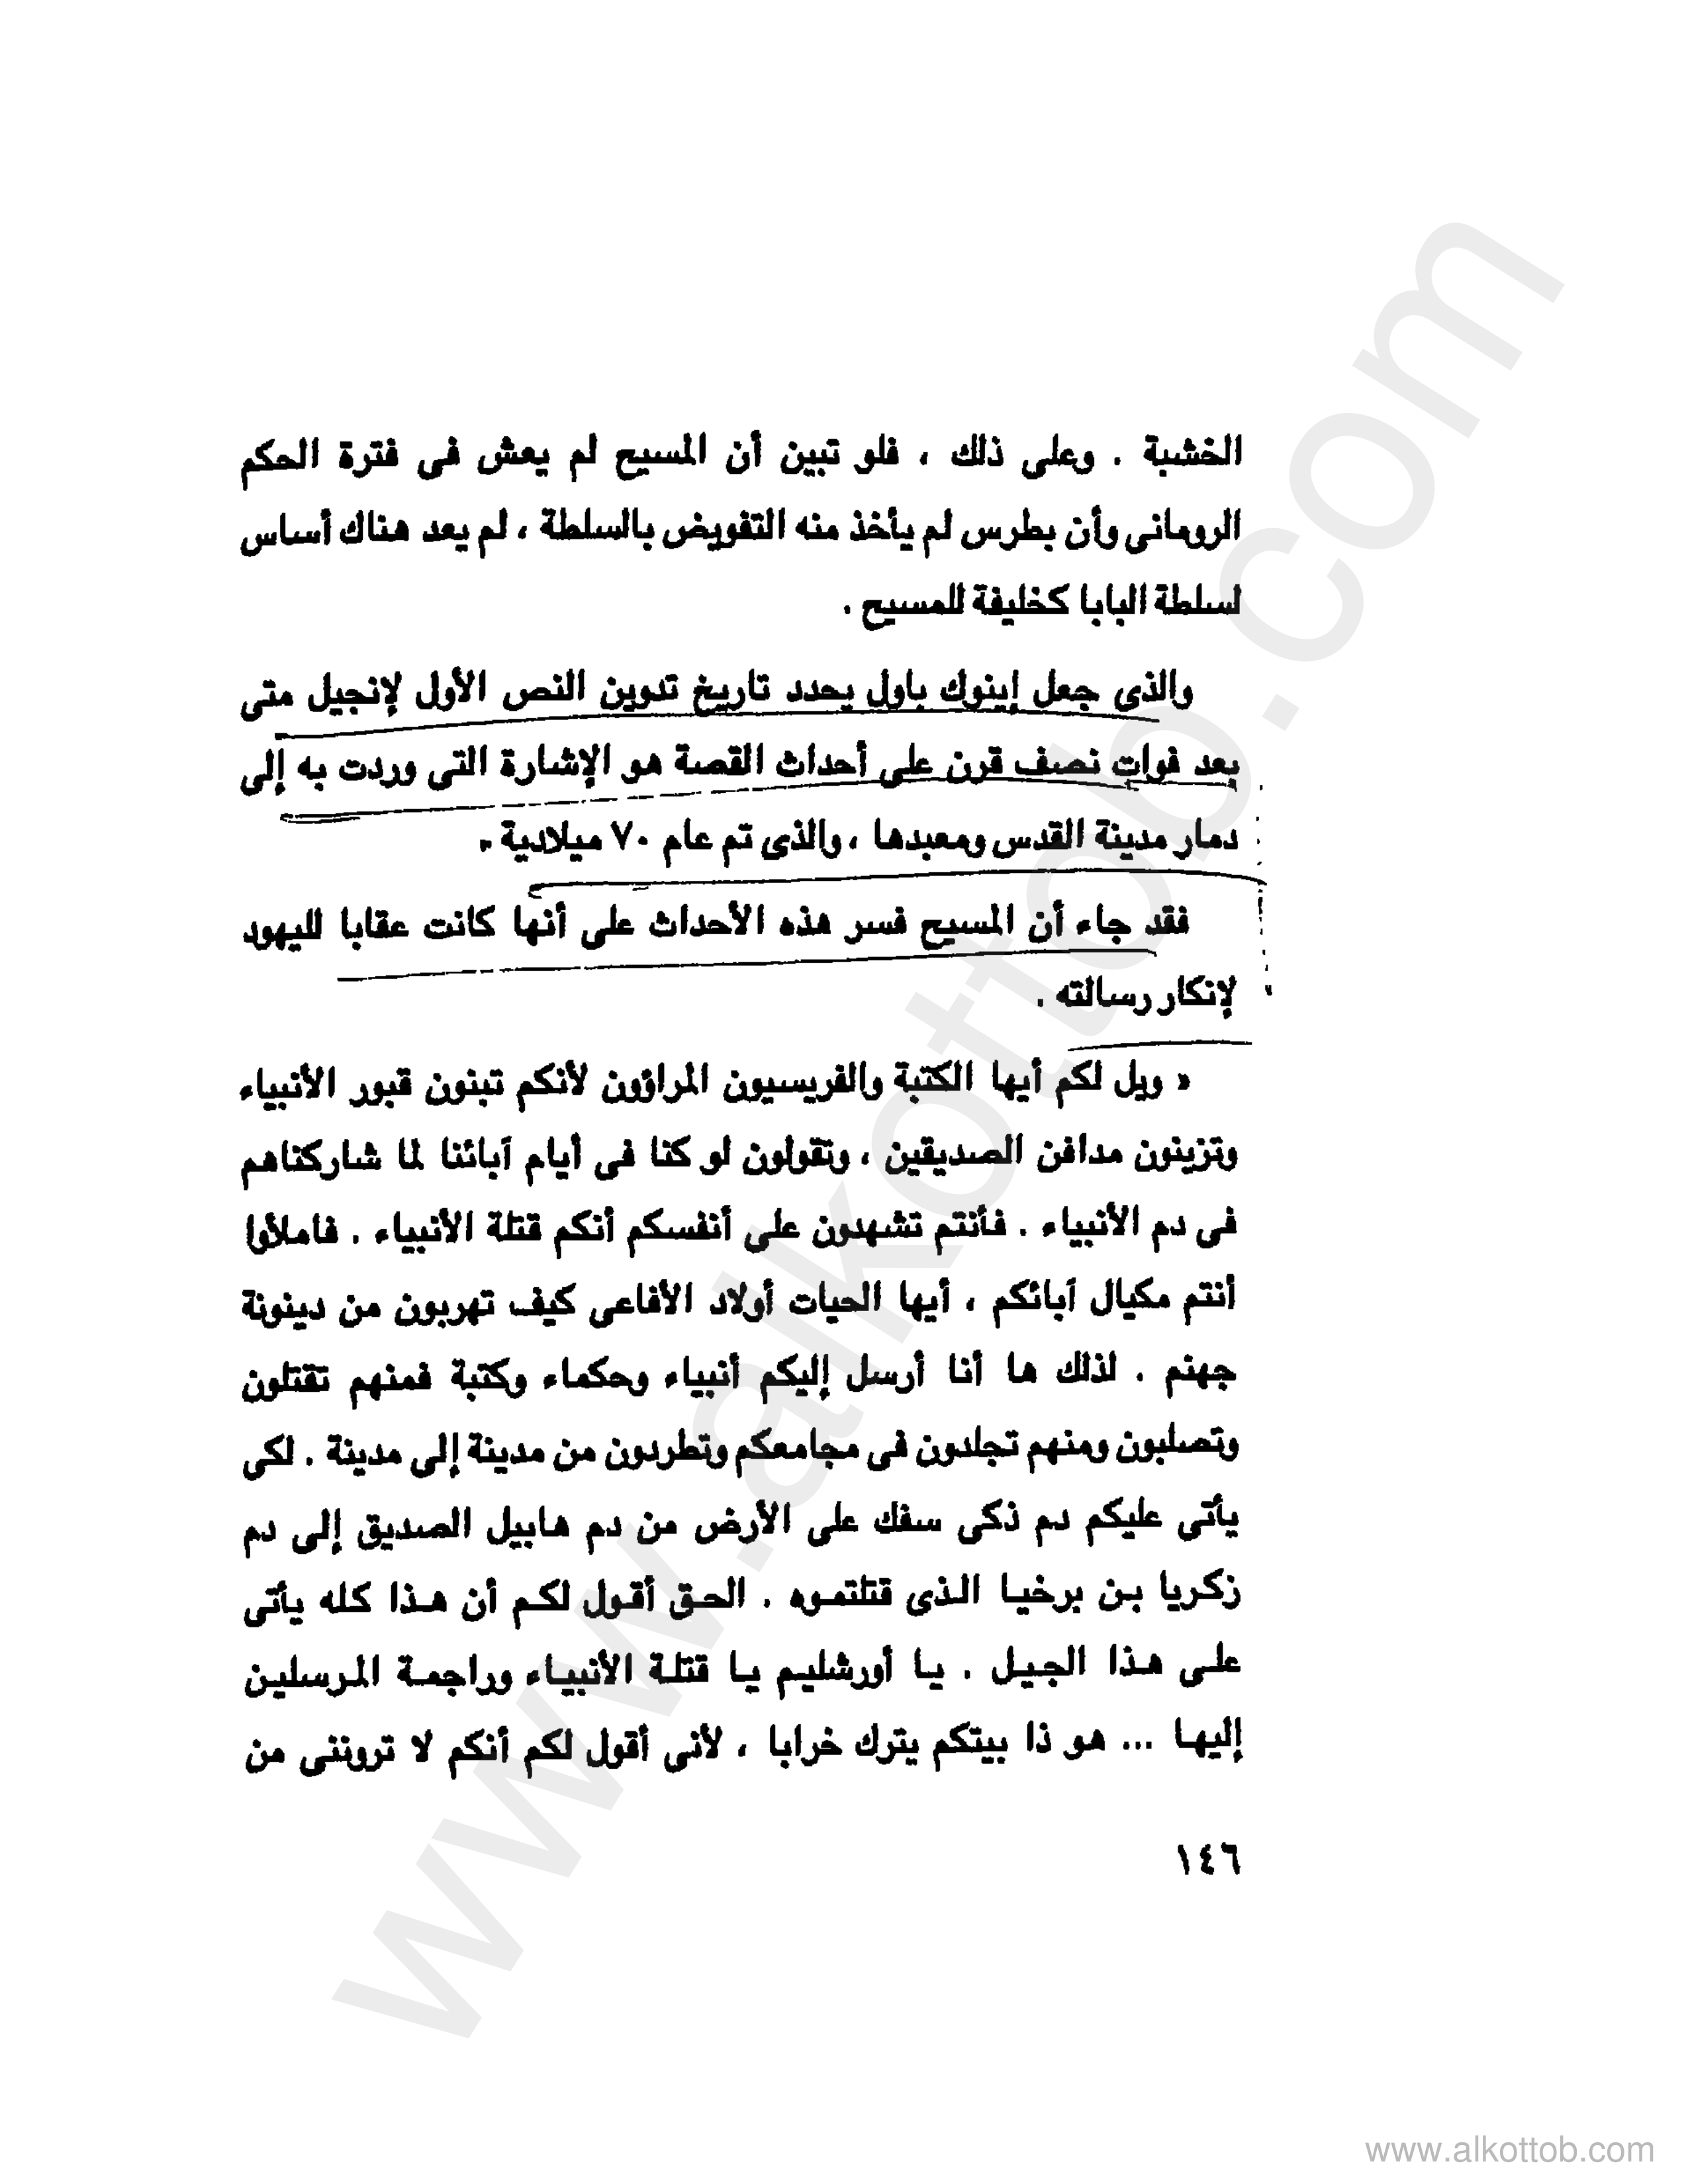 الخشبة . وعلى ذلك ، فلو تبين أن المسيح لم يعش فى فترة الحكم
الرومانى وأن بطرس لم يأخذ منه التفويض بالسلطة ، لم يعد هناك أساس
لسلطة البابا كخليفة للمسيح .
والذى جعل إينوك باول يحدد تاريخ تدوين النص الأول لإنجيل متى
بعد فوات نصف قرن على أحداث القصة هو الإشارة التى وردت به إلى
دمار مدينة القدس ومعبدها ، والذى تم عام ٧٠ ميلادية .
فقد جاء أن المسيح فسر هذه الأحداث على أنها كانت عقابا لليهود
لإنكار رسالته .
« ويل لكم أيها الكتبة والفريسيون المراؤون لأنكم تبنون قبور الأنبياء
وتزينون مدافن الصديقين ، وتقولون لو كنا فى أيام آبائنا لما شاركناهم
فى دم الأنبياء . فأنتم تشهدون على أنفسكم أنكم قتلة الأنبياء . فاملأوا
أنتم مكيال آبائكم ، أيها الحيات أولاد الأفاعى كيف تهربون من دينونة
جهنم . لذلك ها أنا أرسل إليكم أنبياء وحكماء وكتبة فمنهم تقتلون
وتصلبون ومنهم تجلدون فى مجامعكم وتطردون من مدينة إلى مدينة . لكى
يأتى عليكم دم ذكى سفك على الأرض من دم هابيل الصديق إلى دم
زكريا بن برخيا الذى قتلتموه . الحق أقول لكم أن هذا كله يأتى
على هذا الجيل . يا أورشليم يا قتلة الأنبياء وراجمة المرسلين
إليها ... هو ذا بيتكم يترك خرابا ، لأنى أقول لكم أنكم لا تروننى من
١٤٦
www.alkottob.com
www.alkottob.com